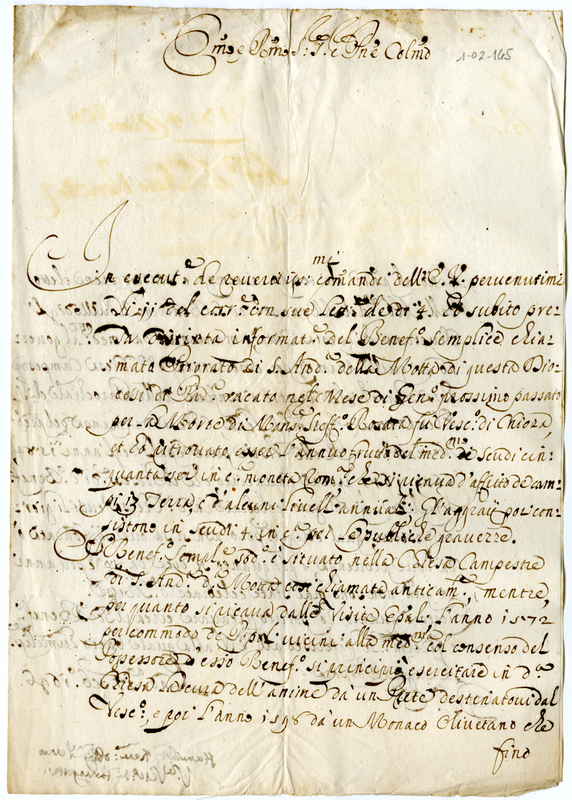 Em.º e Rm.º S.r e Pne Colmo
1-02-145
In execut.e de reveritiss.mi comandi dell'E. V. pervenutimi
li 11 del corr.e con sue let.re de di 4. Ho subito pre-
sa distinta informat.e del Benef.º semplice chia-
mato Priorato di S. And.a della Motta di questa Dio-
cesi di Pad.a vacato nel Mese di Gen.º prossimo passato
per la Morte di Mons. Steff.º Rosata fu Vesc.º di Chioza,
et ho ritrovato esser l'annuo frutto del med.mo de scudi cin-
quantasei in c.a moneta Rom.a che si vienno d'affitto de cam-
pi 13 Terra, e d'alcuni livelli annuali. Gl'aggravij poi con-
sistono in scudi 4. in c.a per le publiche gravezze.
Il Benef.º sempl.e sod.º è situato nella Chiesa Campestre
di S. And.a d.a Motta così chiamata anticam.e, mentre
per quanto si ricava dalle Visite Epāl. l'anno 1572
per commodo de Popol. vicini alla med.ma col consenso del
Possessore d'esso Benef.º si principiò esercitare in d.a
Chiesa la cura dell'anime da un Prete destinatovi dal
Vesc.º, e poi l'anno 1598 da un Monaco Olivetano che
fino